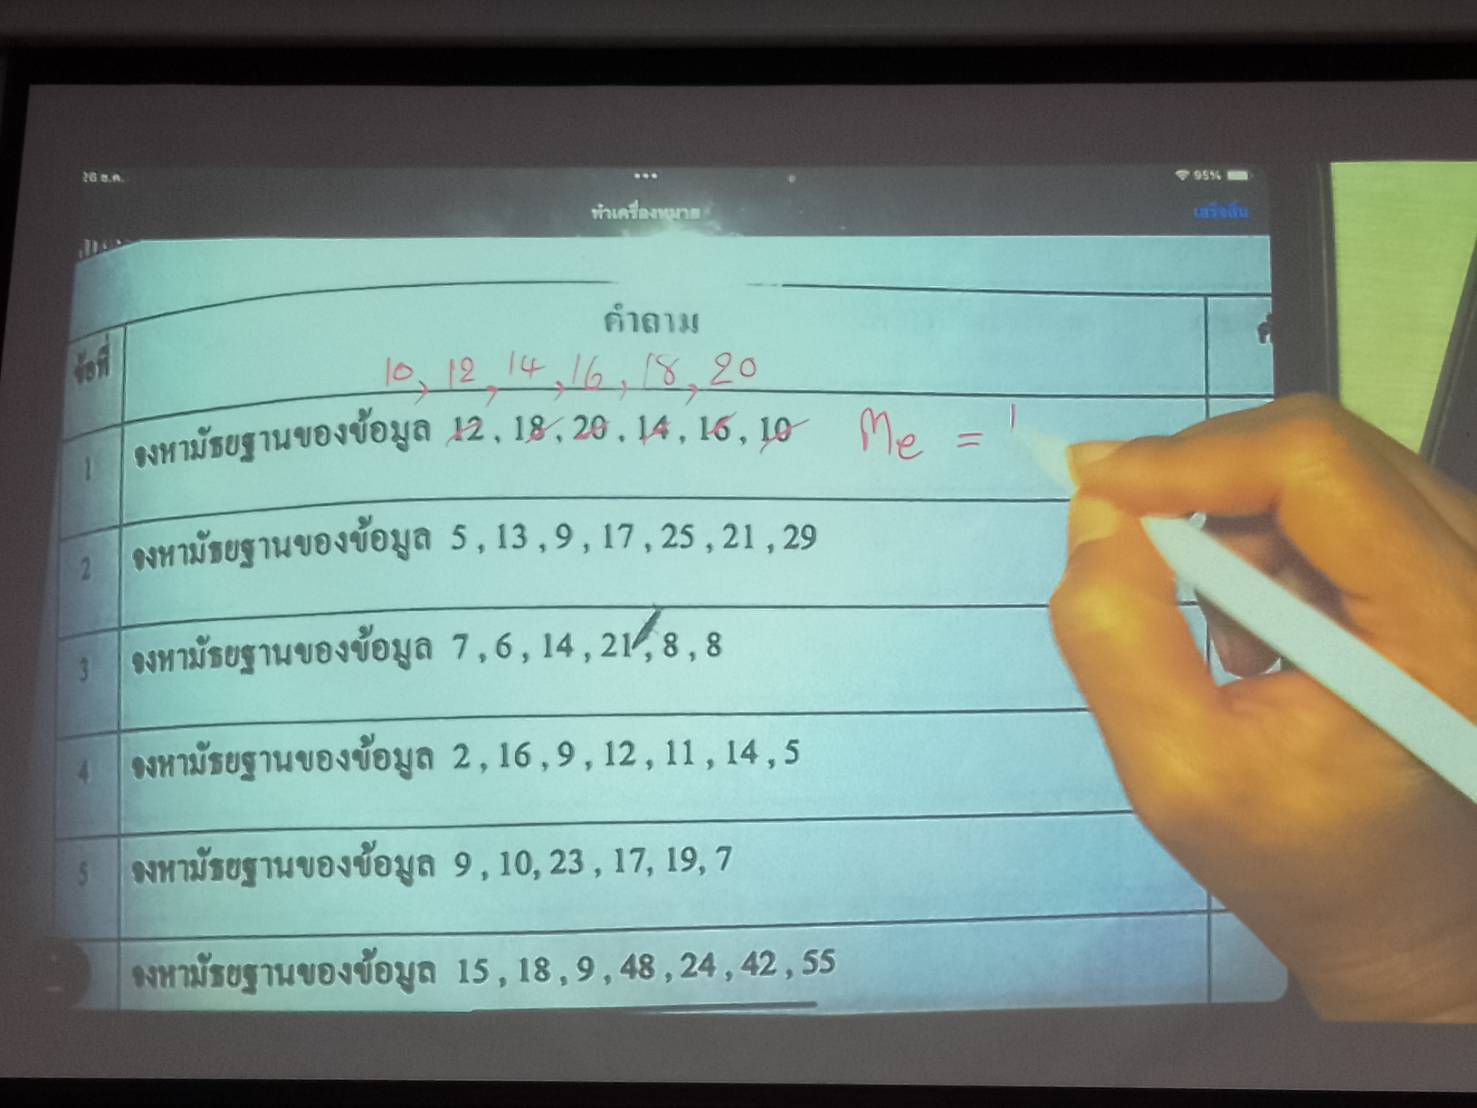 95%
ทำเครื่องหมาย
เสร็จสิ้น
ข้อที่
คำถาม
10, 12, 14, 16, 18, 20
1 จงหามัธยฐานของข้อมูล 12, 18, 20, 14, 16, 10 Me = 1
2 จงหามัธยฐานของข้อมูล 5, 13, 9, 17, 25, 21, 29
3 จงหามัธยฐานของข้อมูล 7, 6, 14, 21, 8, 8
4 จงหามัธยฐานของข้อมูล 2, 16, 9, 12, 11, 14, 5
5 จงหามัธยฐานของข้อมูล 9, 10, 23, 17, 19, 7
จงหามัธยฐานของข้อมูล 15, 18, 9, 48, 24, 42, 55